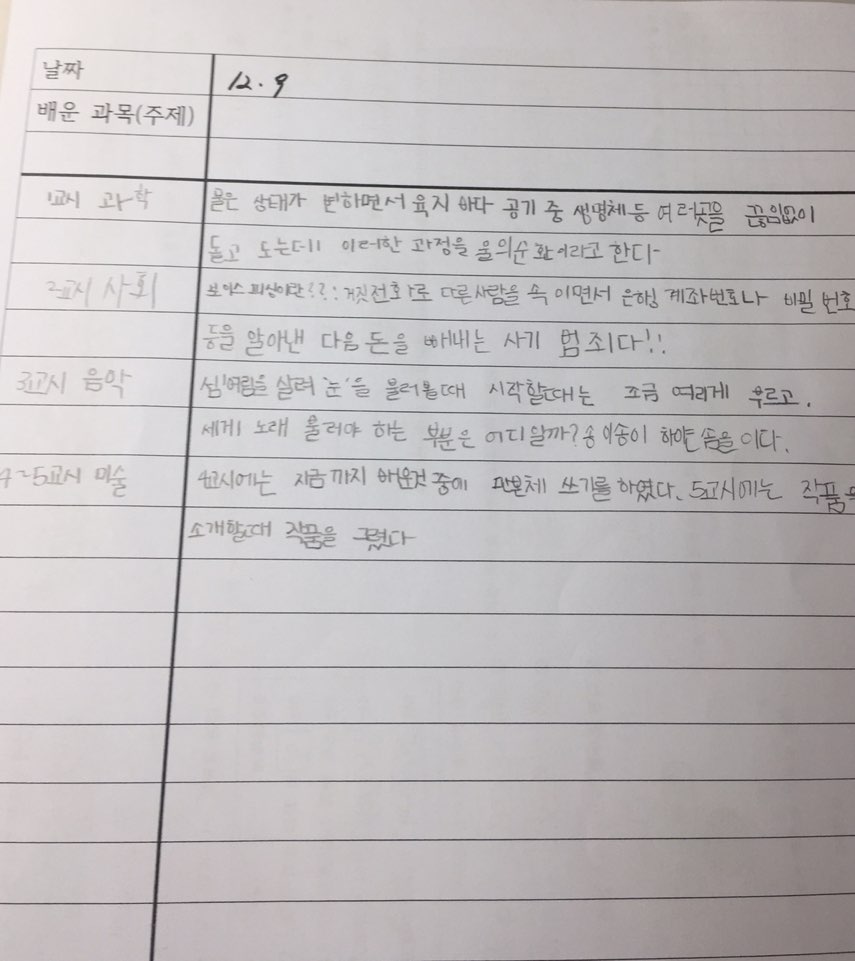 날짜 12.9
배운 과목(주제)
1교시 과학 물은 상태가 변하면서 육지 바다 공기 중 생명체등 여러곳을 끊임없이
돌고 도는데 이러한 과정을 물의순환이라고 한다
2교시 사회 보이스 피싱이란??: 거짓전화로 다른사람을 속이면서 은행 계좌번호나 비밀 번호
등을 알아낸 다음 돈을 빼내는 사기 범죄다!!
3교시 음악 셈여림을 살려 '눈'을 불러볼때 시작할때는 조금 여리게 부르고,
세게 노래 불러야 하는 부분은 어디일까? 송이송이 하얀 솜을 이다.
4~5교시 미술 4교시에는 지금까지 배운것 중에 판본체 쓰기를 하였다. 5교시에는 작품을
소개할때 작품을 그렸다